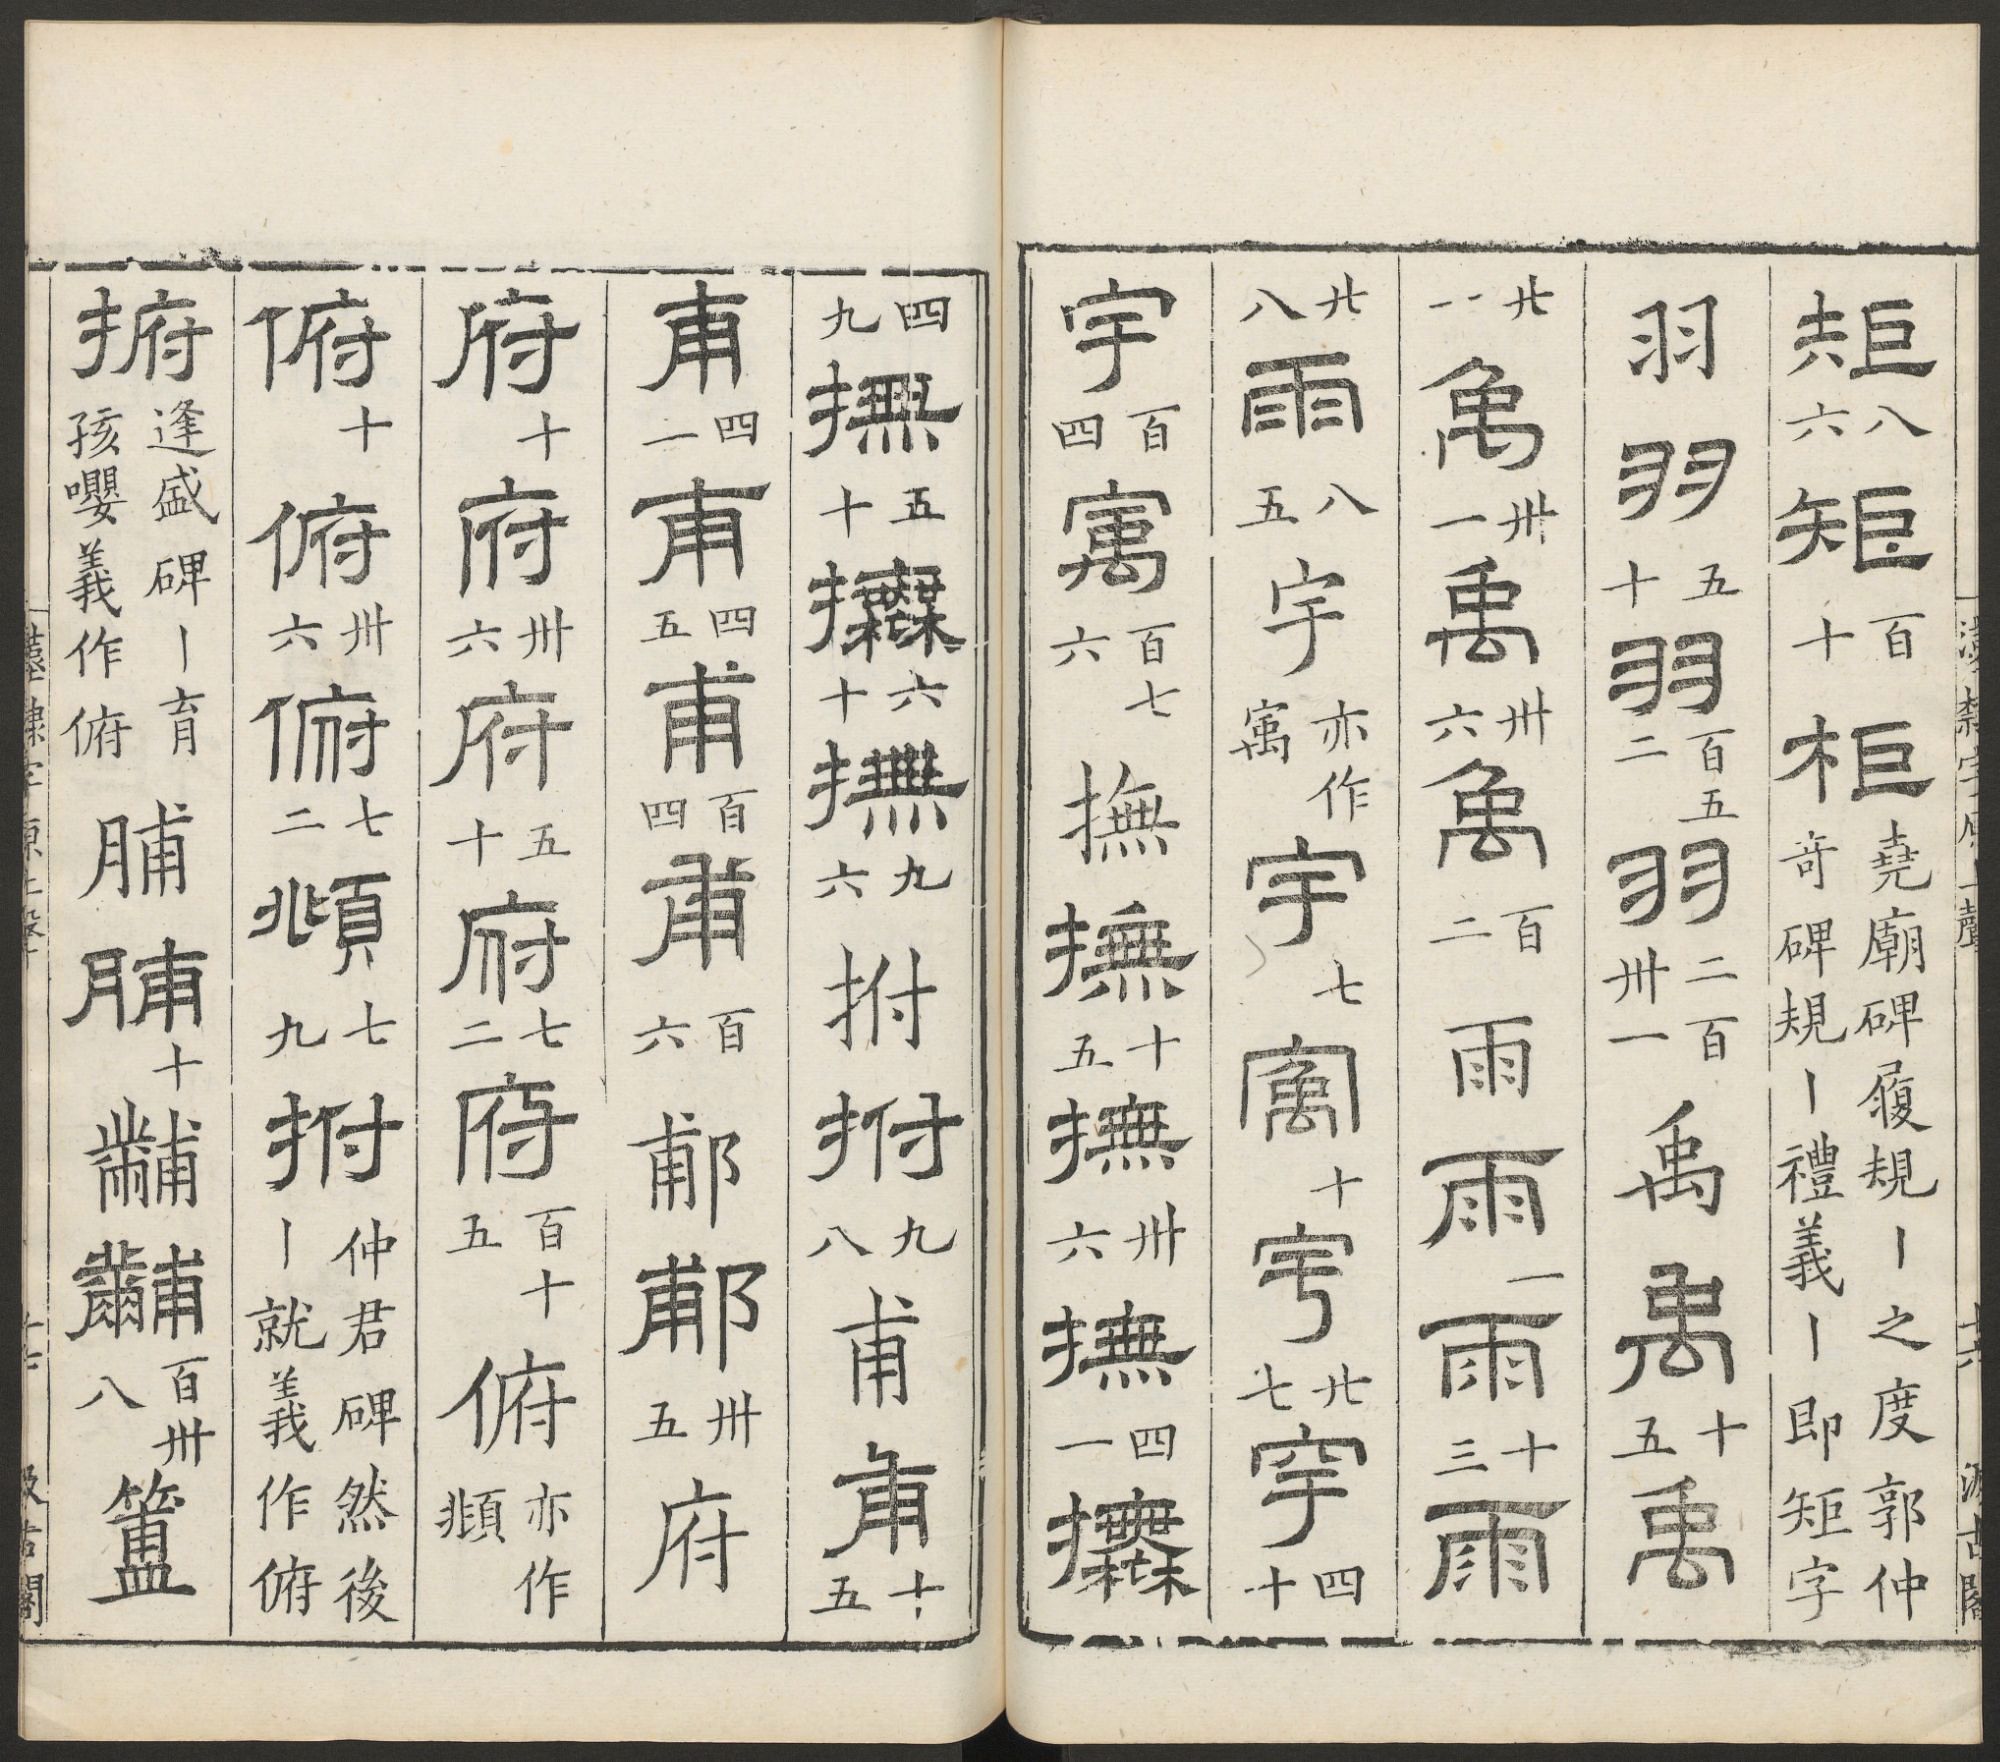 矩八六矩百十柜堯廟碑履規丨之度郭仲奇碑規丨禮義丨即矩字
羽羽五十羽百五二羽二百卅一禹禹十五禹
廿一禹卅一禹卅六禹百二雨雨一雨十三雨
廿八雨八五宇亦作㝢宇七㝢十宇廿七宇四十
宇百四㝢百七六撫撫十五撫卅六撫四一
四九撫五十六十撫九六拊拊九八甫甫十五
甫四一甫四五甫百四甫百六鄜鄜卅五府
府十府卅六府五十府七二府百十五俯亦作頫
俯十俯卅六俯七二頫七九拊仲君碑然後丨就義作俯
捬逢盛碑丨育孩嚶義作俯脯脯十黼黼百卅八簠
漢隸字源上聲 十六 汲古閣
漢隸字源上聲 十七 汲古閣